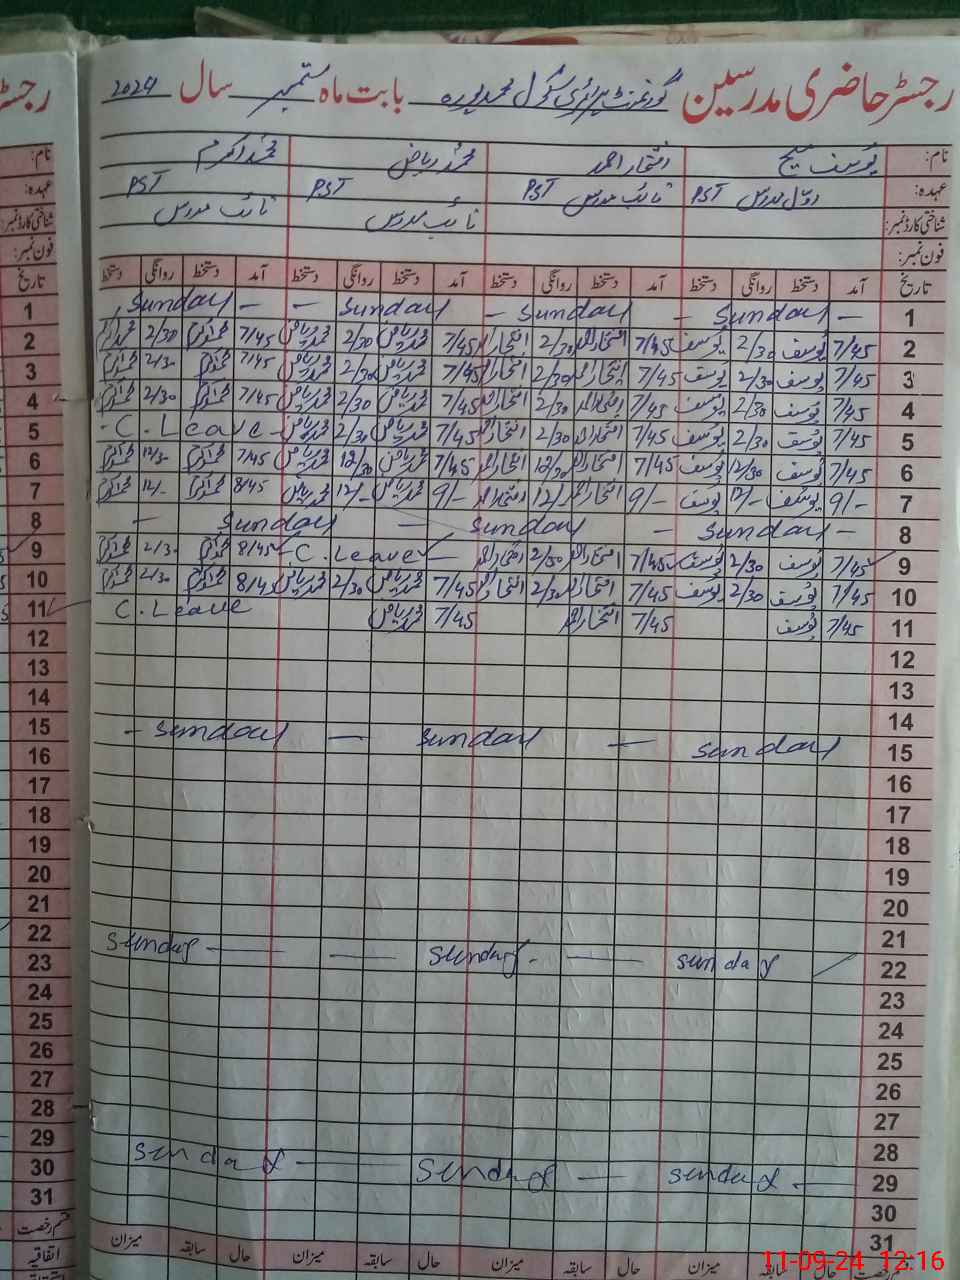 رجسٹر حاضری مدرسین گورنمنٹ پرائمری سکول محمدپورہ بابت ماہ ستمبر سال 2024
نام: یوسف مسیح افتخار احمد محمد ریاض محمد اکرم
عہدہ: مدرس PST نائب مدرس PST PST PST
شناختی کارڈ نمبر: نائب مدرس نائب مدرس
فون نمبر:
تاریخ آمد دستخط روانگی دستخط آمد دستخط روانگی دستخط آمد دستخط روانگی دستخط آمد دستخط روانگی دستخط
1 - Sunday - Sunday - Sunday - - Sunday
2 7/45 یوسف 2/30 یوسف 7/45 افتخار احمد 2/30 افتخار احمد 7/45 محمد ریاض 2/30 محمد ریاض 7/45 محمد اکرم 2/30 محمد اکرم
3 7/45 یوسف 2/30 یوسف 7/45 افتخار احمد 2/30 افتخار احمد 7/45 محمد ریاض 2/30 محمد ریاض 7/45 محمد اکرم 2/30 محمد اکرم
4 7/45 یوسف 2/30 یوسف 7/45 افتخار احمد 2/30 افتخار احمد 7/45 محمد ریاض 2/30 محمد ریاض 7/45 محمد اکرم 2/30 محمد اکرم
5 7/45 یوسف 2/30 یوسف 7/45 افتخار احمد 2/30 افتخار احمد 7/45 محمد ریاض 2/30 محمد ریاض - C. Leave -
6 7/45 یوسف 12/30 یوسف 7/45 افتخار احمد 12/30 افتخار احمد 7/45 محمد ریاض 12/30 محمد ریاض 7/45 محمد اکرم 12/3 محمد اکرم
7 9/- یوسف 12/- یوسف 9/- افتخار احمد 12/- افتخار احمد 9/- محمد ریاض 12/- محمد ریاض 8/45 محمد اکرم 12/- محمد اکرم
8 - Sunday - Sunday - Sunday -
9 7/45 یوسف 2/30 یوسف 7/45 افتخار احمد 2/30 افتخار احمد - C. Leave - 8/45 محمد اکرم 2/3 محمد اکرم
10 7/45 یوسف 2/30 یوسف 7/45 افتخار احمد 2/30 افتخار احمد 7/45 محمد ریاض 2/30 محمد ریاض 8/45 محمد اکرم 2/30 محمد اکرم
11 7/45 یوسف 7/45 افتخار احمد 7/45 محمد ریاض C. Leave
12
13
14
15 Sunday - Sunday - Sunday -
16
17
18
19
20
21
22 Sunday - Sunday - Sunday
23
24
25
26
27
28
29 - Sunday - Sunday - Sunday
30
31
حال سابقہ میزان حال سابقہ میزان حال سابقہ میزان
رجسٹر
نام:
عہدہ:
شناختی کارڈ نمبر:
فون نمبر:
تاریخ
1
2
3
4
5
6
7
8
9
10
11
12
13
14
15
16
17
18
19
20
21
22
23
24
25
26
27
28
29
30
31
قسم رخصت
اتفاقیہ
11-09-24 12:16